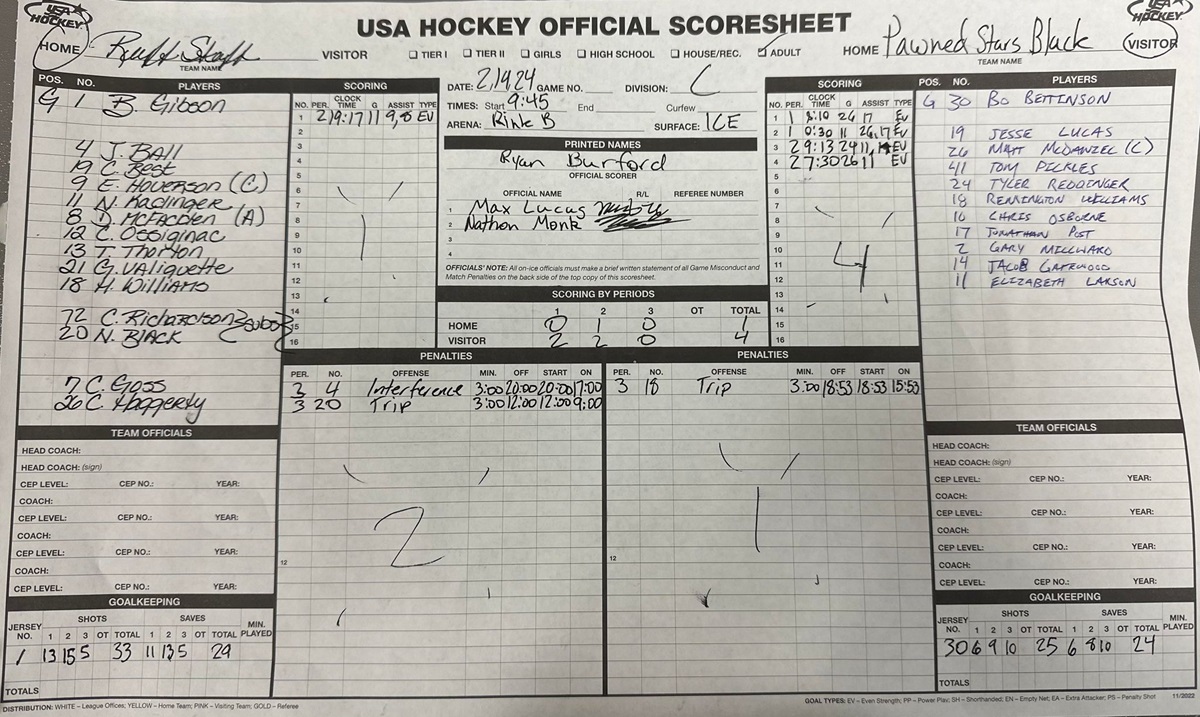 USA HOCKEY
USA HOCKEY OFFICIAL SCORESHEET
USA HOCKEY
HOME Ruff Staff VISITOR ☐ TIER I ☐ TIER II ☐ GIRLS ☐ HIGH SCHOOL ☐ HOUSE/REC. ☑ ADULT HOME Pawned Stars Black VISITOR
TEAM NAME TEAM NAME
POS. NO. PLAYERS
G 1 B. Gibson
4 J. BALL
19 C. Best
9 E. Hoverson (C)
11 N. Kadinger
8 D. McFadden (A)
12 C. Ossiginac
13 T. Thorton
21 G. Valiquette
18 H. Williams
72 C. Richardson
20 N. BLACK
subs
7 C. Goss
26 C. Haggerty
SCORING
NO. PER. CLOCK TIME G ASSIST TYPE
1 2 19:17 11 9,8 EV
2
3
4
5
6
7
8
9
10
11
12
13
14
15
16
1
DATE: 2/19/24 GAME NO. DIVISION: C
TIMES: Start 9:45 End Curfew
ARENA: Rink B SURFACE: ICE
PRINTED NAMES
Ryan Burford
OFFICIAL SCORER
OFFICIAL NAME R/L REFEREE NUMBER
1 Max Lucas
2 Nathon Monk
3
4
OFFICIALS' NOTE: All on-ice officials must make a brief written statement of all Game Misconduct and
Match Penalties on the back side of the top copy of this scoresheet.
SCORING BY PERIODS
1 2 3 OT TOTAL
HOME 0 1 0 1
VISITOR 2 2 0 4
SCORING
NO. PER. CLOCK TIME G ASSIST TYPE
1 1 8:10 26 17 EV
2 1 0:30 11 26,17 EV
3 2 9:13 24 11,14 EV
4 2 7:30 26 11 EV
5
6
7
8
9
10
11
12
13
14
15
16
4
POS. NO. PLAYERS
G 30 BO BETTINSON
19 JESSE LUCAS
26 MATT McDANZEL (C)
41 TOM PICKLES
24 TYLER REDDINGER
18 REMINGTON WILLIAMS
16 CHRIS OSBORNE
17 JONATHAN POST
2 GARY MILLWARD
14 JACOB GATEWOOD
11 ELIZABETH LARSON
PENALTIES
PER. NO. OFFENSE MIN. OFF START ON
3 4 Interference 3:00 20:00 20:00 17:00
3 20 Trip 3:00 12:00 12:00 9:00
2
12
PENALTIES
PER. NO. OFFENSE MIN. OFF START ON
3 18 Trip 3:00 18:53 18:53 15:53
1
12
TEAM OFFICIALS
HEAD COACH:
HEAD COACH: (sign)
CEP LEVEL: CEP NO.: YEAR:
COACH:
CEP LEVEL: CEP NO.: YEAR:
COACH:
CEP LEVEL: CEP NO.: YEAR:
COACH:
CEP LEVEL: CEP NO.: YEAR:
GOALKEEPING
JERSEY NO. SHOTS SAVES MIN. PLAYED
1 2 3 OT TOTAL 1 2 3 OT TOTAL
1 13 15 5 33 11 13 5 29
TOTALS
TEAM OFFICIALS
HEAD COACH:
HEAD COACH: (sign)
CEP LEVEL: CEP NO.: YEAR:
COACH:
CEP LEVEL: CEP NO.: YEAR:
COACH:
CEP LEVEL: CEP NO.: YEAR:
COACH:
CEP LEVEL: CEP NO.: YEAR:
GOALKEEPING
JERSEY NO. SHOTS SAVES MIN. PLAYED
1 2 3 OT TOTAL 1 2 3 OT TOTAL
30 6 9 10 25 6 8 10 24
TOTALS
DISTRIBUTION: WHITE – League Offices; YELLOW – Home Team; PINK – Visiting Team; GOLD – Referee
GOAL TYPES: EV – Even Strength; PP – Power Play; SH – Shorthanded; EN – Empty Net; EA – Extra Attacker; PS – Penalty Shot 11/2022